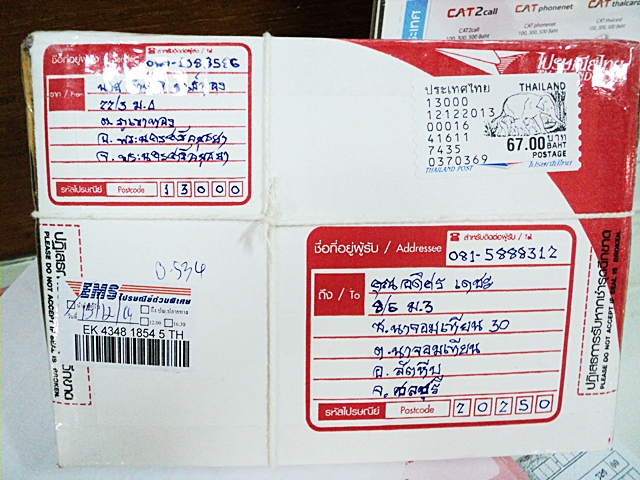 CAT2call
CAT2call
100, 300, 500 Baht
CAT phonenet
CAT phonenet
100, 300, 500 Baht
CAT thaicard
100, 300, 500
ไปรษณีย์ไทย
สำหรับติดต่อผู้ฝาก / Tel.
จาก / From
22/3 ม.2
ต.
อ. พระนครศรีอยุธยา
จ. พระนครศรีอยุธยา
รหัสไปรษณีย์ Postcode 1 3 0 0 0
ประเทศไทย THAILAND
13000
12122013
00016
41611 67.00 บาท BAHT
7435 POSTAGE
0370369
THAILAND POST ไปรษณีย์ไทย
ปฏิเสธ
PLEASE DO NOT ACCEPT IF SEAL IS BROKEN.
0-534
EMS ไปรษณีย์ด่วนพิเศษ
12.00 16.30
EK 4348 1854 5 TH
ชื่อที่อยู่ผู้รับ / Addressee
สำหรับติดต่อผู้รับ / Tel.
081-5888312
ถึง / To
คุณอดิศร เดชรี
8/6 ม.3
ซ.นาจอมเทียน 30
ต.นาจอมเทียน
อ.สัตหีบ
จ.ชลบุรี
รหัสไปรษณีย์ Postcode 2 0 2 5 0
ปฏิเสธการรับหากเทปกาวฉีกขาด
PLEASE DO NOT ACCEPT IF SEAL IS BROKEN.